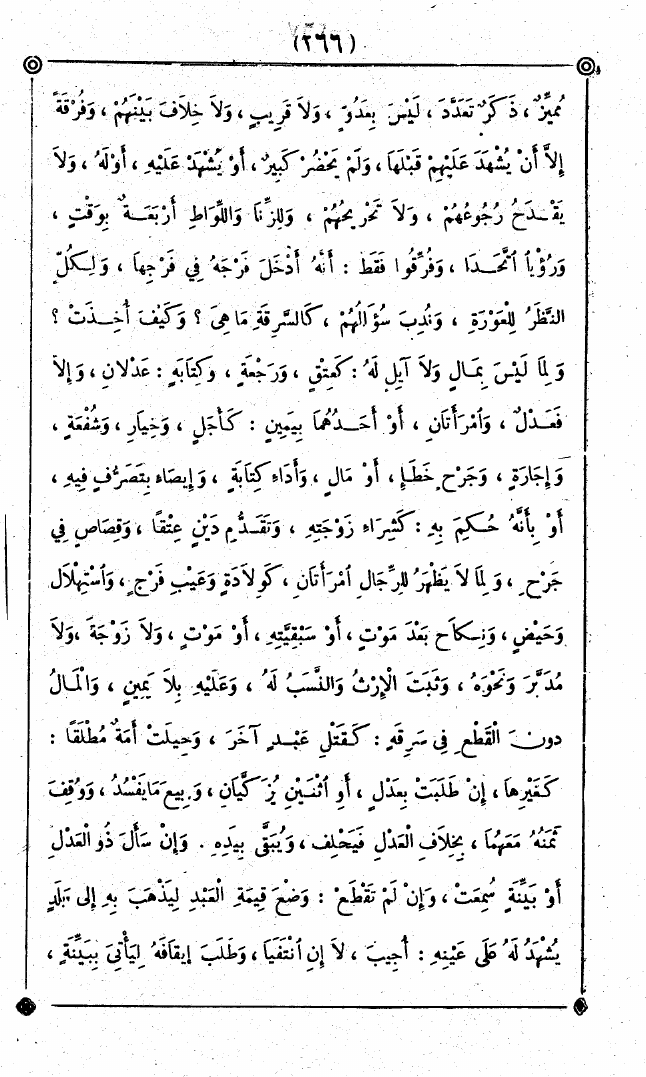 (٢٦٦)
مُمَيِّزٌ ، ذَكَرٌ تَعَدَّدَ ، لَيْسَ بِعَدُوٍّ ، وَلاَ قَرِيبٍ ، وَلاَ خِلاَفَ بَيْنَهُمْ ، وَفُرْقَةَ
إِلاَّ أَنْ يُشْهَدَ عَلَيْهِمْ قَبْلَهَا ، وَلَمْ يَحْضُرْ كَبِيرٌ ، أَوْ يُشْهَدْ عَلَيْهِ ، أَوْلَهُ ، وَلاَ
يَقْدَحُ رُجُوعُهُمْ ، وَلاَ تَجْرِيحُهُمْ ، وَلِلزِّنَا وَاللِّوَاطِ أَرْبَعَةٌ بِوَقْتٍ ،
وَرُؤْيَا اتَّحَدَا ، وَفُرِّقُوا فَقَطْ : أَنَّهُ أَدْخَلَ فَرْجَهُ فِي فَرْجِهَا ، وَلِكُلٍّ
النَّظَرُ لِلْعَوْرَةِ ، وَنُدِبَ سُؤَالُهُمْ ، كَالسَّرِقَةِ مَا هِىَ ؟ وَكَيْفَ أُخِذَتْ ؟
وَلِمَا لَيْسَ بِمَالٍ وَلاَ آيِلٍ لَهُ : كَعِتْقٍ ، وَرَجْعَةٍ ، وَكِتَابَةٍ : عَدْلاَنِ ، وَإِلاَّ
فَعَدْلٌ ، وَامْرَأَتَانِ ، أَوْ أَحَدُهُمَا بِيَمِينٍ : كَأَجَلٍ ، وَخِيَارٍ ، وَشُفْعَةٍ ،
وَإِجَارَةٍ ، وَجَرْحِ خَطَإٍ ، أَوْ مَالٍ ، وَأَدَاءِ كِتَابَةٍ ، وَإِيصَاءٍ بِتَصَرُّفٍ فِيهِ ،
أَوْ بِأَنَّهُ حُكِمَ بِهِ : كَشِرَاءِ زَوْجَتِهِ ، وَتَقَدُّمِ دَيْنٍ عِتْقًا ، وَقِصَاصٍ فِي
جَرْحٍ ، وَلِمَا لاَ يَظْهَرُ لِلرِّجَالِ امْرَأَتَانِ ، كَوِلاَدَةٍ وَعَيْبِ فَرْجٍ ، وَاسْتِهْلاَلٍ
وَحَيْضٍ ، وَنِكَاحٍ بَعْدَ مَوْتٍ ، أَوْ سَبْقِيَّتِهِ ، أَوْ مَوْتٍ ، وَلاَ زَوْجَةَ ، وَلاَ
مُدَبَّرَ وَنَحْوَهُ ، وَثَبَتَ الْإِرْثُ وَالنَّسَبُ لَهُ ، وَعَلَيْهِ بِلاَ يَمِينٍ ، وَالْمَالُ
دُونَ الْقَطْعِ فِى سَرِقَةٍ : كَقَتْلِ عَبْدٍ آخَرَ ، وَحِيلَتْ أَمَةٌ مُطْلَقًا :
كَغَيْرِهَا ، إِنْ طَلَبَتْ بِعَدْلٍ ، أَوِ اثْنَيْنِ يُزَكَّيَانِ ، وَبِيعَ مَا يَفْسُدُ ، وَوُقِفَ
ثَمَنُهُ مَعَهُمَا ، بِخِلاَفِ الْعَدْلِ فَيَحْلِفُ ، وَيُبَقَّى بِيَدِهِ . وَإِنْ سَأَلَ ذُو الْعَدْلِ
أَوْ بَيِّنَةٍ سُمِعَتْ ، وَإِنْ لَمْ تَقْطَعْ : وَضْعَ قِيمَةِ الْعَبْدِ لِيَذْهَبَ بِهِ إِلَى بَلَدٍ
يُشْهَدُ لَهُ عَلَى عَيْنِهِ : أُجِيبَ ، لاَ إِنِ انْتَفَيَا ، وَطَلَبَ إِيقَافَهُ لِيَأْتِىَ بِبَيِّنَةٍ ،